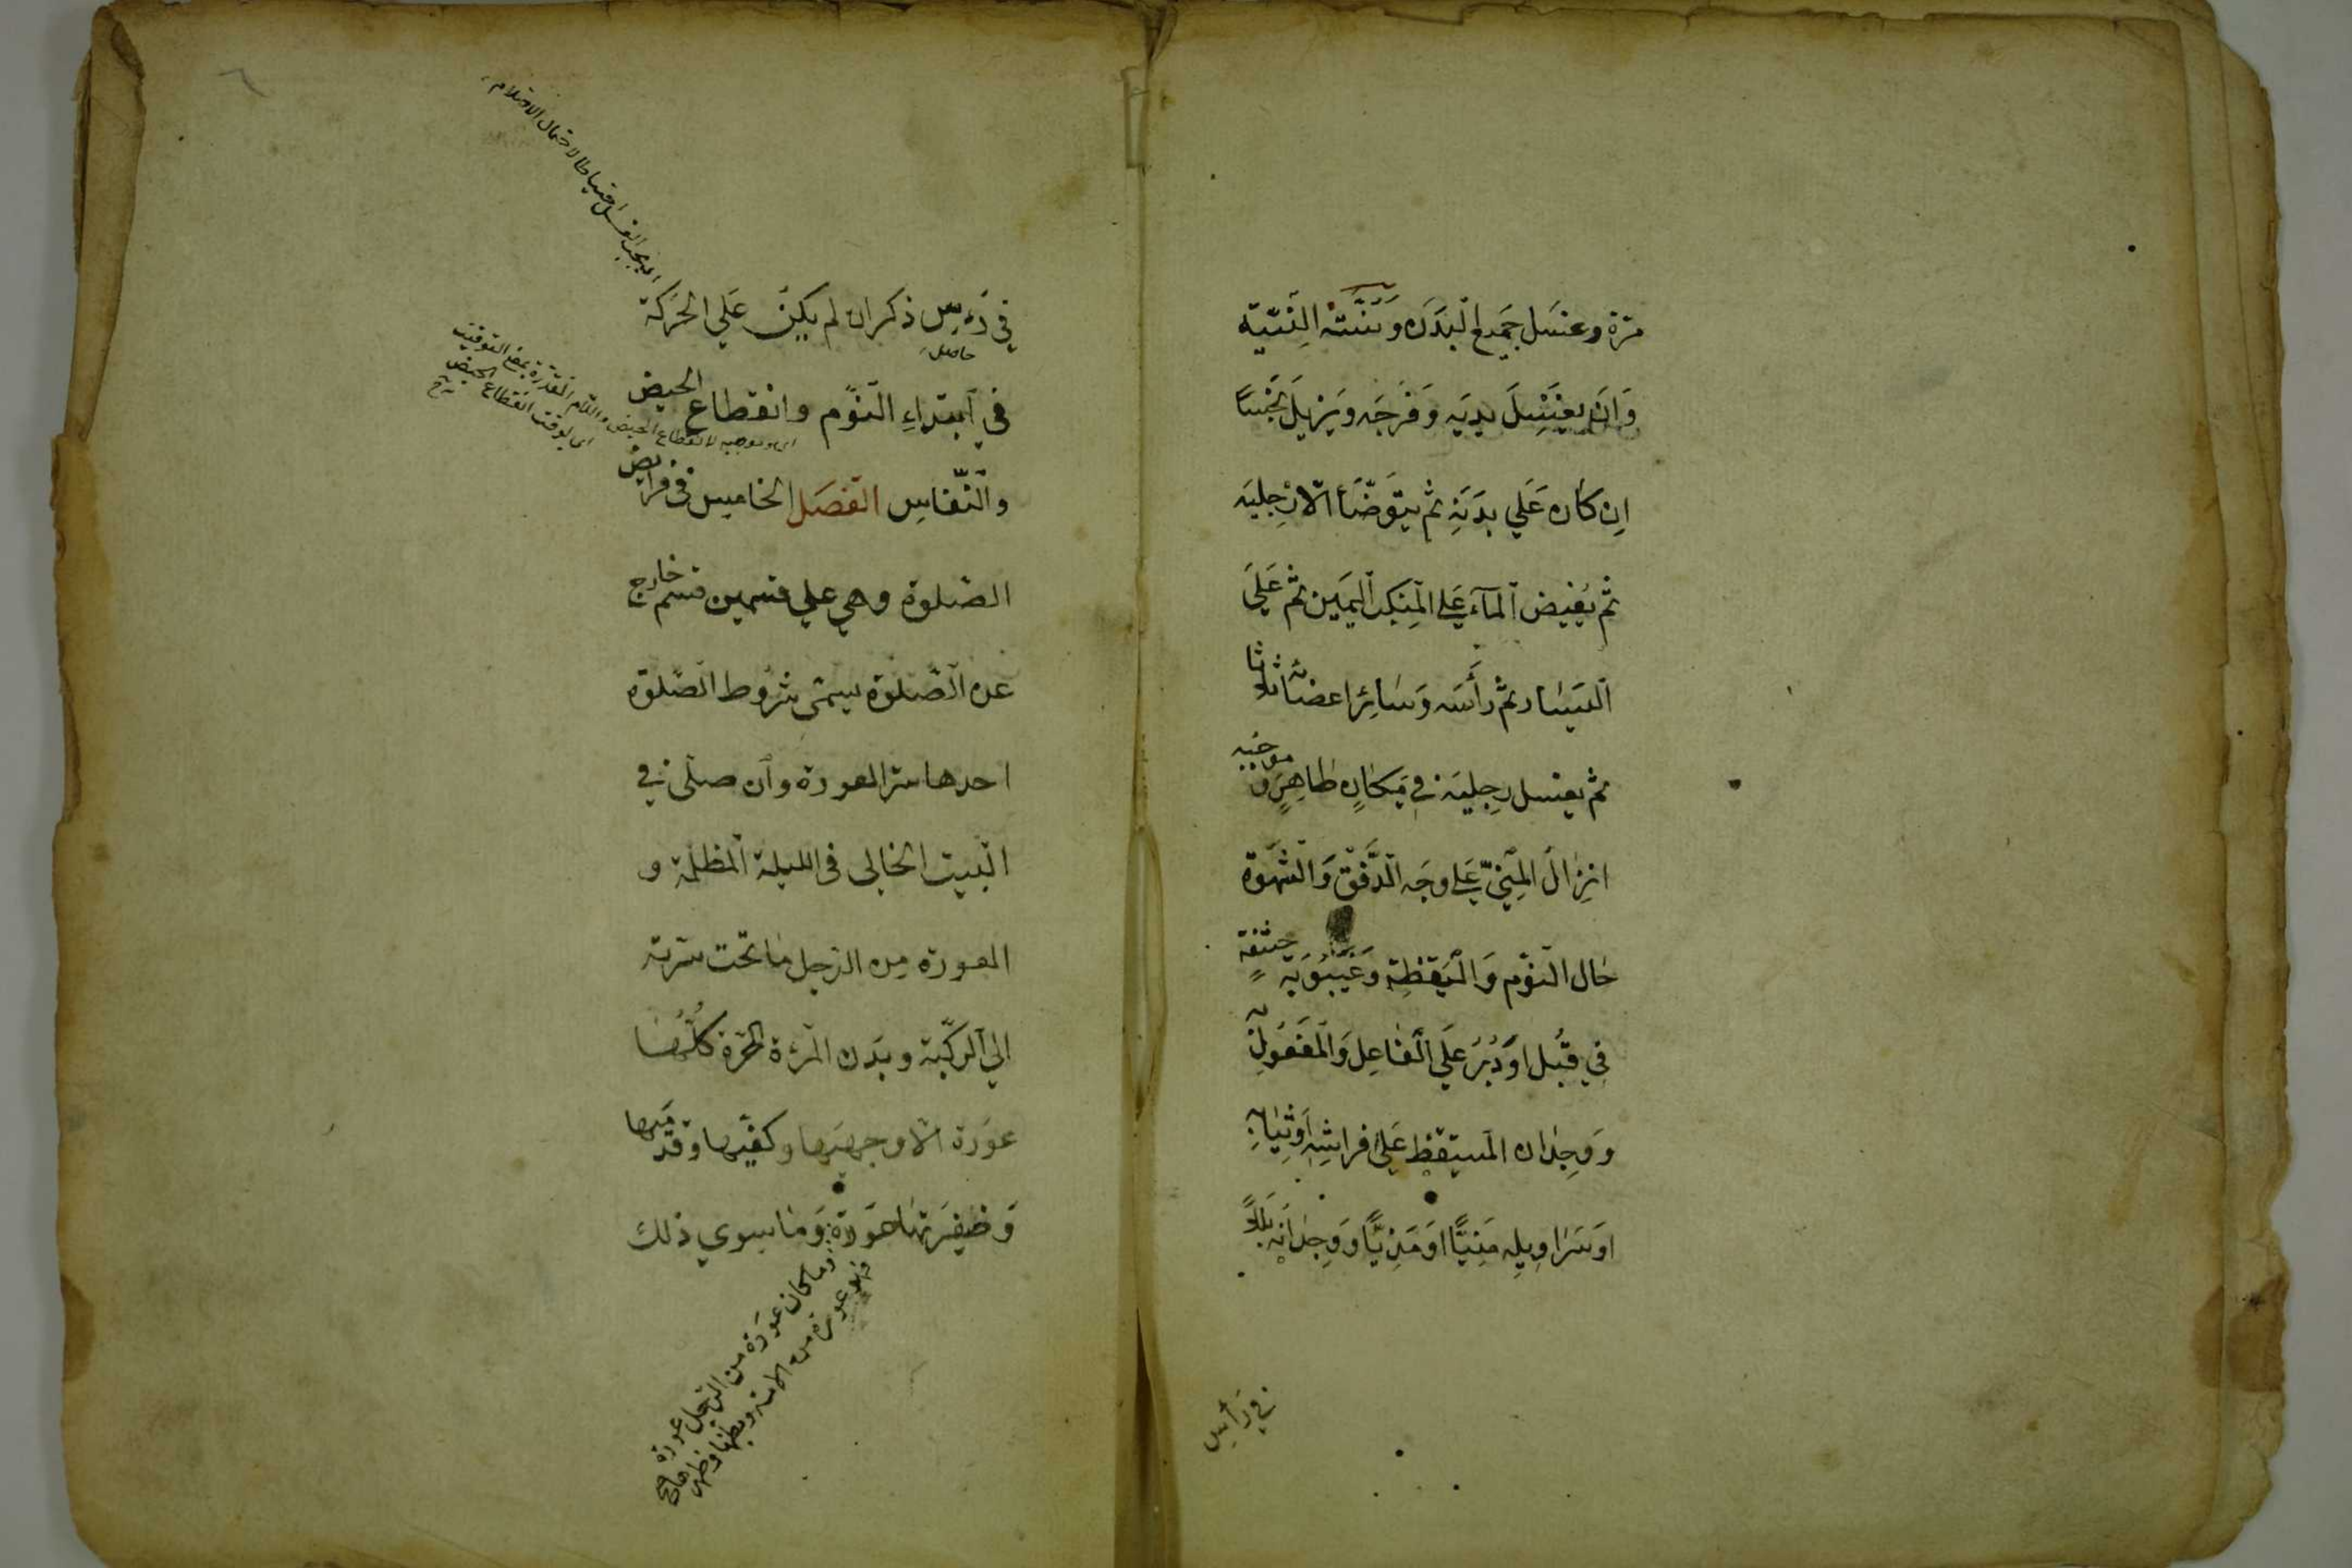 مرة وغسل جميع البدن وسننه النية
وان يغتسل يديه وفرجه ويزيل نجسا
ان كان علي بدنه ثم يتوضأ الا رجليه
ثم يفيض المآء على المنكب اليمين ثم علي
اليسار ثم رأسه وسائر اعضائه ثلاثا
ثم يغسل رجليه في مكان طاهر و موجبه
انزال المني على وجه الدفق والشهوة
حال النوم واليقظة وغيبوبة حشفة
في قبل او دبر علي الفاعل والمفعول به
ووجدان المستيقظ علي فراشه او ثيابه
او سراويله منيا او مذيا ووجدانه بللا
في رأس
في رءس ذكر ان لم يكن علي الحركة
حاصله
في ابتداء النوم وانقطاع الحيض
والنفاس الفصل الخامس في فرايض
الصلوة وهي علي قسمين قسم خارج
عن الصلوة يسمى شروط الصلوة
احدها ستر العورة وان صلى في
البيت الخالى فى الليلة المظلمة و
العورة من الرجل ما تحت سرته
الي الركبة وبدن المرءة الحرة كلها
عورة الا وجهها وكفيها وقدميها
وضفيرتها عورة وما سوي ذلك
يجب الغسل احتياطا لاحتمال الاحتلام
اى وموجبه لانقطاع الحيض واللام المقدرة بمعنى التوقيت
اى لوقت انقطاع الحيض
وما كان عورة من الرجل عورة
فهو عورة من الامة وبطنها وظهرها